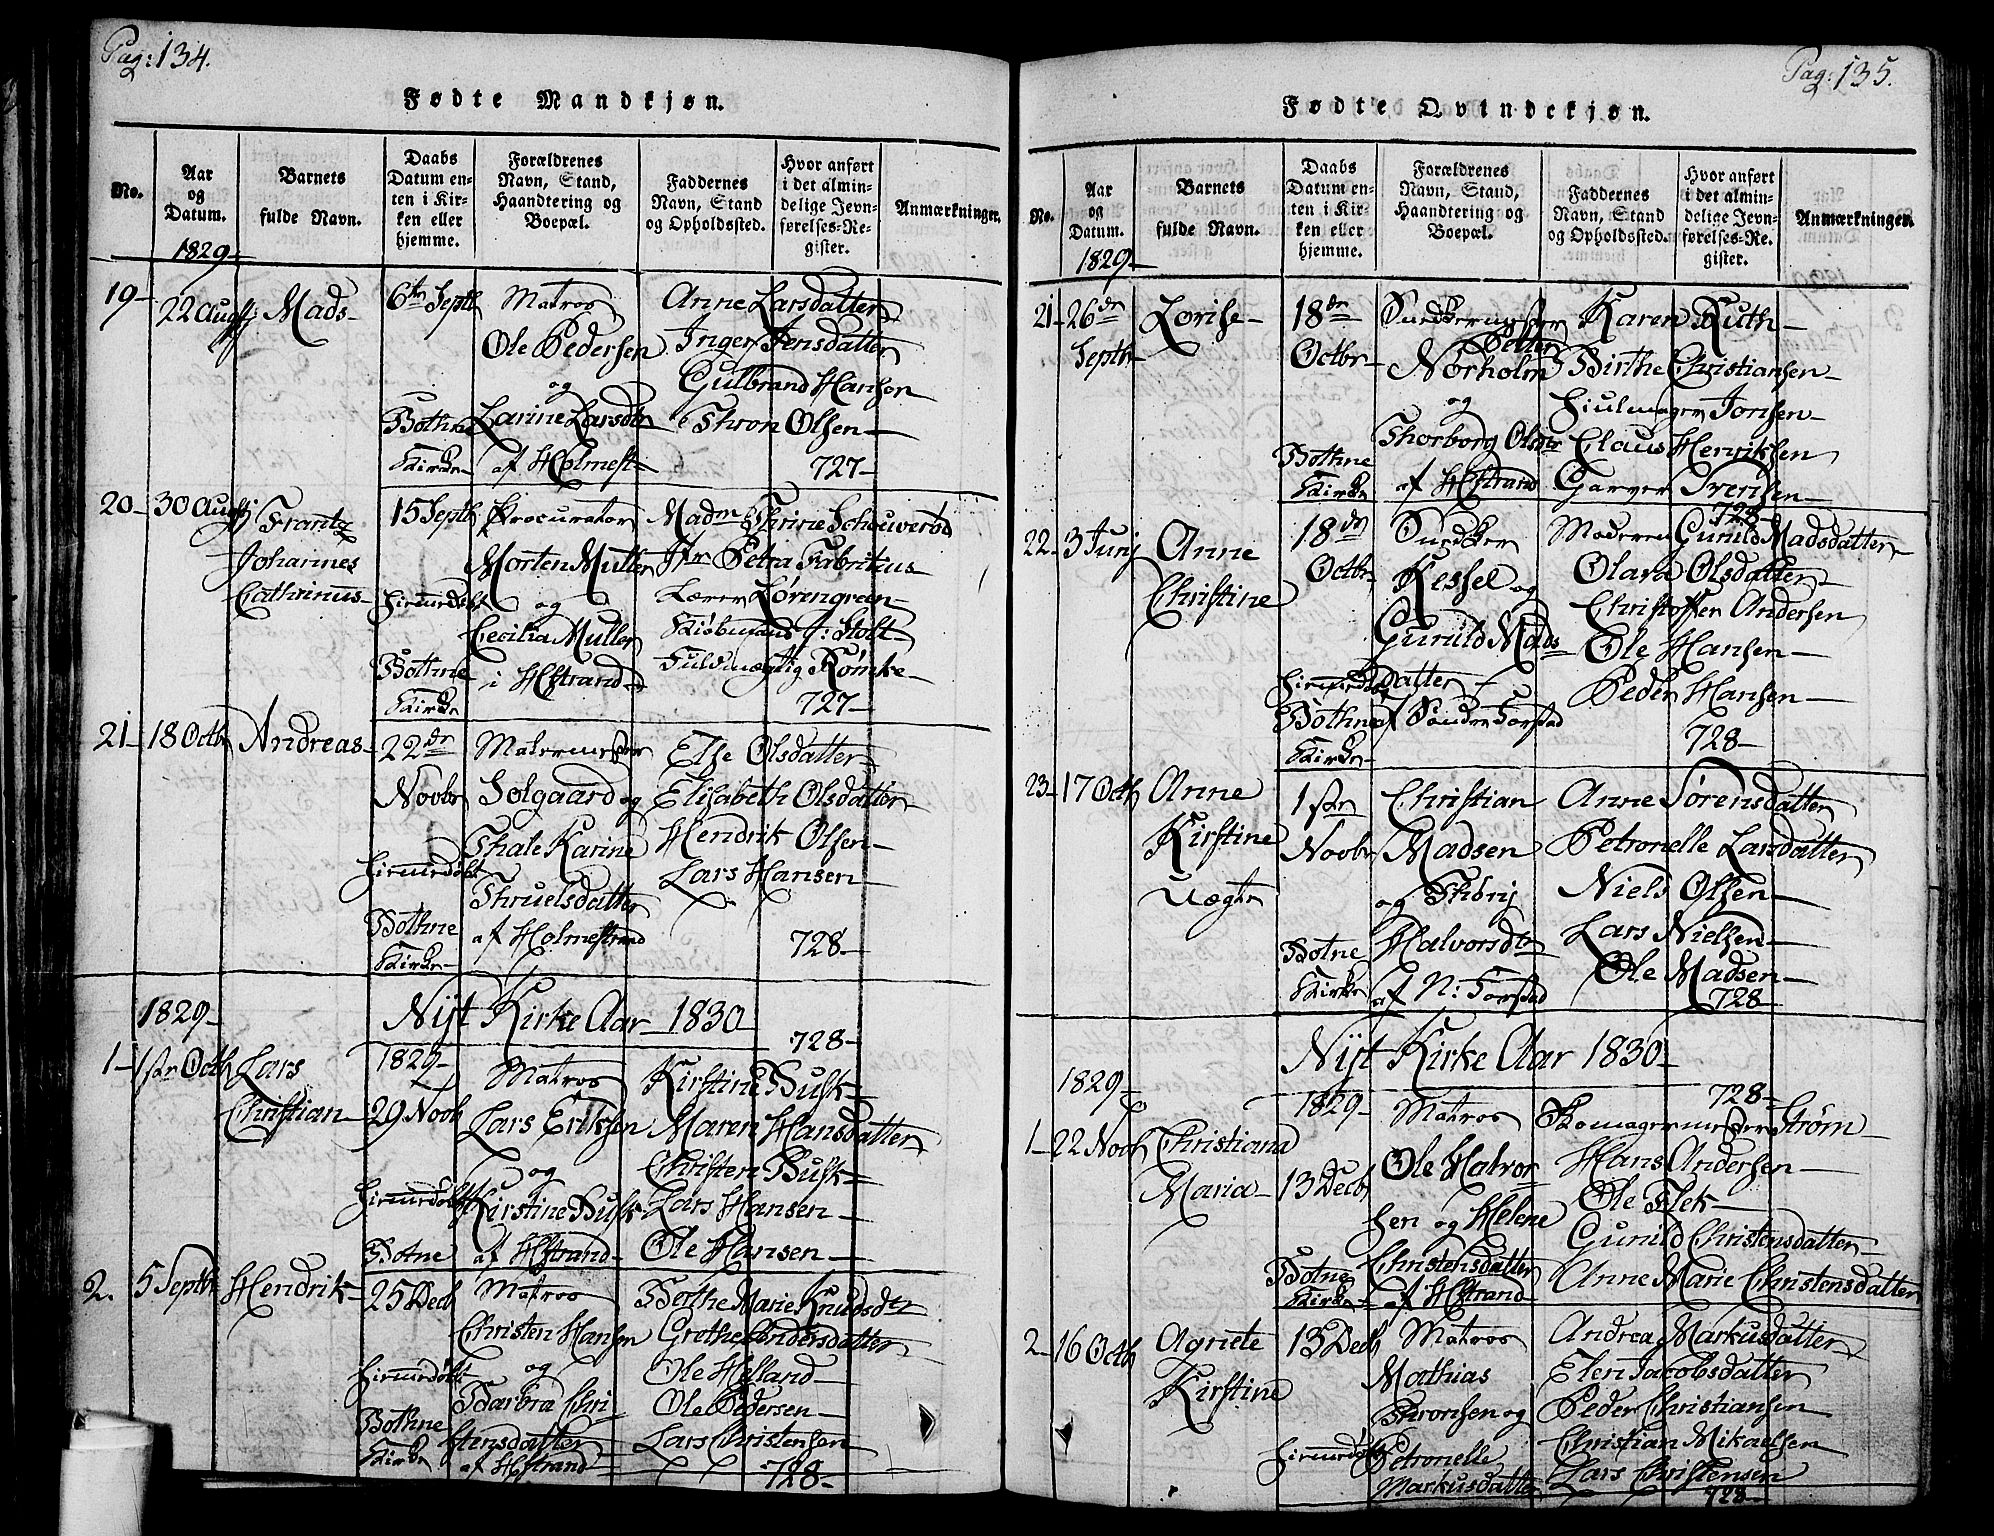 Pag: 134.
Fødte Mandkjøn.
No.
Aar
og
Datum.
1829
Barnets
fulde Navn.
Daabs
Datum en-
ten i Kir-
ken eller
hjemme.
Forældrenes
Navn, Stand,
Haandtering og
Boepæl.
Faddernes
Navn, Stand
og Opholdssted.
Hvor anført
i det almin-
delige Jevn-
førelses-Re-
gister.
Anmærkninger.
19
22 Augstj
Mads
6te Septb
Bothne
Kirke
Matros
Ole Pedersen
og
Larine Larsdtr
af Holmest
Anne Larsdatter
Inger Jensdatter
Gulbrand Hansen
Thron Olsen
727
20
30 Augstj
Frantz
Johannes
Cathrinus
15 Septb
Hiemmedøbt
Bothne
Kirke
Procurator
Morten Muller
og
Cecilia Muller
i Hstrand
Madm Thrine Schouverød
Jfr Petra Fabritius
Lærer Lørengreen
Kiøbmand J: Holt
Fulvmægtig Rømke
727
21
18 Octbr
Andreas
22de
Novbr
Hiemmedøbt
Bothne
Kirke
Malermester
Solgaard og
Thale Karine
Thruelsdatter
af Holmestrand
Else Olsdatter
Elisabeth Olsdatter
Hendrik Olsen
Lars Hansen
728
1829
Nyt Kirke Aar 1830
728
1
1ste Octb
Lars
Christian
1829
29 Novb
Hiemmedøbt
Botne
Matros
Lars Eriksen
og
Kirstine Busk
af Hstrand
Kirstine Busk
Maren Hansdatter
Christen Busk
Lars Hansen
Ole Hansen
2.
5 Septbr
Hendrik
25 Decb
Hiemmedøbt
Bothne
Kirke
Matros
Christen Hansen
og
Barbra Chri
stensdatter
af Hstrand
Berthe Marie Knudsdtr
Grethe Andersdatter
Ole Helland
Ole Pedersen
Lars Christensen
728
Pag: 135.
Fødte Qvindekjøn.
No.
Aar
og
Datum.
1829
Barnets
fulde Navn.
Daabs
Datum en-
ten i Kir-
ken eller
hjemme.
Forældrenes
Navn, Stand,
Haandtering og
Boepæl.
Faddernes
Navn, Stand
og Opholdssted.
Hvor anført
i det almin-
delige Jevn-
førelses-Re-
gister.
Anmærkninger.
21
26de
Septbr
Lovise
18de
Octbr
Bothne
Kirke
Snedkermester
Petter
Nørholm
og
Thorborg Olsdtr
af Hstrand
Karen Ruth
Birthe Christiansen
Hiulmager Jonsen
Claus Henriksen
Garver Iversen
728
22
3 Junj
Anne
Christine
18de
Octbr
Hiemmedøbt
Bothne
Kirke
Snedker
Kessel og
Gunild Mads
datter
af Søndre Forstad
Moderen Gunild Madsdatter
Olava Olsdatter
Christoffer Andersen
Ole Hansen
Peder Hansen
728
23
17 Octb
Anne
Kirstine
Uægte
1ste
Novbr
Botne
Kirke
Christian
Madsen
og Thorij
Halvorsdtr
af N: Forstad
Anne Sørensdatter
Petronelle Larsdatter
Niels Olsen
Lars Nielsen
Ole Madsen
728
Nyt Kirke Aar 1830
1829
728
1
22 Novb
Christiana
Maria
1829
13 Decb
Botne
Kirke
Matros
Ole Halvor
sen og Helene
Christensdatter
af Hstrand
Skomagermester Strøm
Hans Andersen
Ole Flek
Gunild Christensdatter
Anne Marie Christensdatter
2
16 Octb
Agnete
Kirstine
13 Decb
Hiemmedøbt
Matros
Mathias
Thronsen og
Petronelle
Markusdatter
Andrea Markusdatter
Elen Jacobsdatter
Peder Christiansen
Christian Mikaelsen
Lars Christensen
728